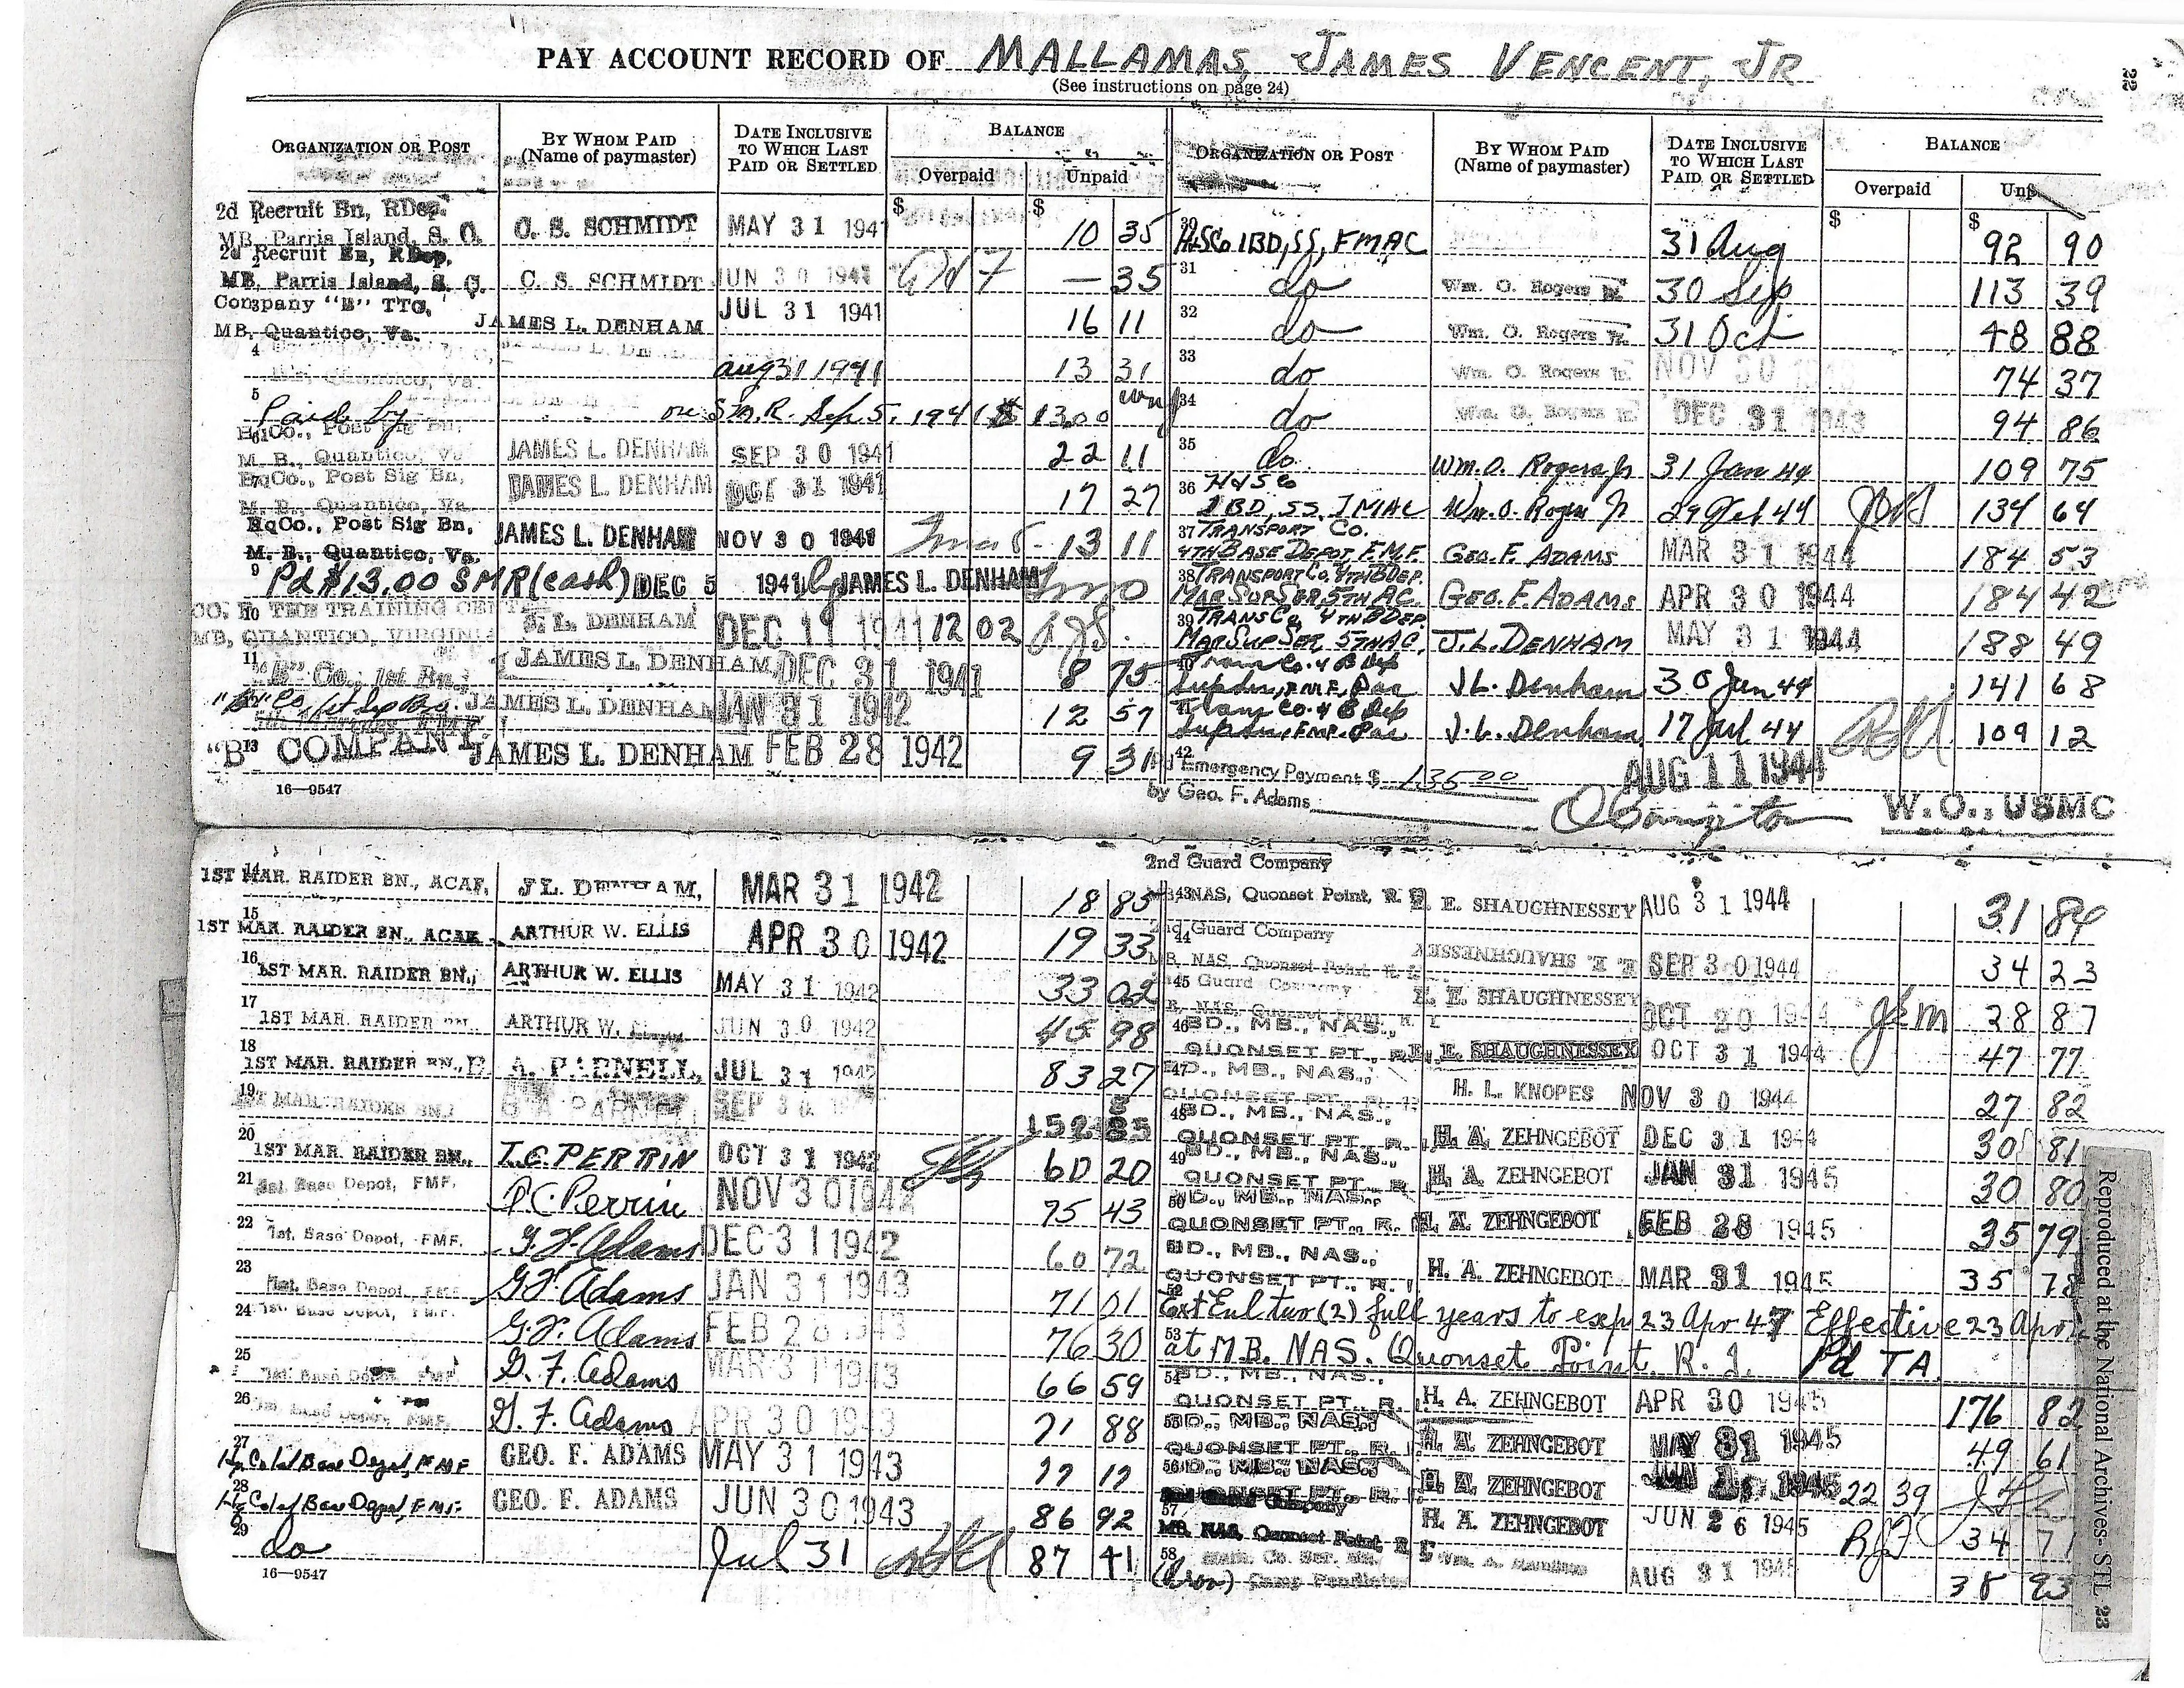 PAY ACCOUNT RECORD OF MALLAMAS, JAMES VENCENT, JR
(See instructions on page 24)
22
ORGANIZATION OR POST BY WHOM PAID (Name of paymaster) DATE INCLUSIVE TO WHICH LAST PAID OR SETTLED BALANCE Overpaid Unpaid
2d Recruit Bn, RDep.
MB, Parris Island, S. C. C. S. SCHMIDT MAY 31 1941 $ $ 10 35
2d Recruit Bn, RDep.
MB, Parris Island, S. C. C. S. SCHMIDT JUN 30 1941 — 35
Company "E" TTC.
MB, Quantico, Va. JAMES L. DENHAM JUL 31 1941 16 11
4 Quantico, Va. Aug 31 1941 13 31
5 Paid by on S.M.R. Sep 5, 1941 $ 13.00
HqCo., Post Sig Bn,
M. B., Quantico, Va JAMES L. DENHAM SEP 30 1941 22 11
HqCo., Post Sig Bn,
M. B., Quantico, Va JAMES L. DENHAM OCT 31 1941 17 27
HqCo., Post Sig Bn,
M. B., Quantico, Va. JAMES L. DENHAM NOV 30 1941 13 11
9 Pd $13.00 SMR (cash) DEC 5 1941 by JAMES L. DENHAM
10 THE TRAINING CENT
MB, QUANTICO, VIRGINIA J. L. DENHAM DEC 11 1941 12 02
11 "B" Co., 1st Bn., JAMES L. DENHAM DEC 31 1941 8 75
JAMES L. DENHAM JAN 31 1942 12 57
13 "B" COMPANY JAMES L. DENHAM FEB 28 1942 9 31
16—9547
14 1ST MAR. RAIDER BN., ACAF, J L. DENHAM, MAR 31 1942 18 85
15 1ST MAR. RAIDER BN., ACAF, ARTHUR W. ELLIS APR 30 1942 19 33
16 1ST MAR. RAIDER BN., ARTHUR W. ELLIS MAY 31 1942 33 02
17 1ST MAR. RAIDER BN., ARTHUR W. JUN 30 1942 45 98
18 1ST MAR. RAIDER BN., B. A. PARNELL, JUL 31 1942 83 27
19 1ST MAR. RAIDER BN., B A PARNELL SEP 30 152 85
20 1ST MAR. RAIDER BN., T. C. PERRIN OCT 31 1942 60 20
21 1st. Base Depot, FMF. Perrin NOV 30 1942 75 43
22 1st. Base Depot, FMF. G. F. Adams DEC 31 1942 60 72
23 1st. Base Depot, FMF. G. F. Adams JAN 31 1943 71 01
24 1st. Base Depot, FMF. G. F. Adams FEB 28 1943 76 30
25 1st. Base Depot, FMF. G. F. Adams MAR 31 1943 66 59
26 1st. Base Depot, FMF. G. F. Adams APR 30 1943 71 88
27 1st Base Depot, FMF GEO. F. ADAMS MAY 31 1943 77 17
28 1st Base Depot, FMF. GEO. F. ADAMS JUN 30 1943 86 92
29 do Jul 31 87 41
16—9547
ORGANIZATION OR POST BY WHOM PAID (Name of paymaster) DATE INCLUSIVE TO WHICH LAST PAID OR SETTLED BALANCE Overpaid
30 H&SCo 1BD, SS, FMAC 31 Aug $ $ 92 90
31 do Wm. O. Rogers Jr. 30 Sep 113 39
32 do Wm. O. Rogers Jr. 31 Oct 48 88
33 do Wm. O. Rogers Jr. NOV 30 74 37
34 do Wm. O. Rogers DEC 31 1943 94 86
35 do Wm. O. Rogers Jr 31 Jan 44 109 75
36 H&S Co
1BD, SS, IMAC Wm. O. Rogers Jr 29 Feb 44 134 64
37 TRANSPORT CO.
4TH BASE DEPOT, F.M.F. GEO. F. ADAMS MAR 31 1944 184 53
38 TRANSPORT CO, 4TH BDEP.
MAR SUP SER 5TH AC. GEO. F. ADAMS APR 30 1944 184 42
39 TRANS CO, 4TH BDEP.
MAR SUP SER, 5TH AC, J. L. DENHAM MAY 31 1944 188 49
Trans Co. 4 B Dep
FMF, Pac J L. Denham 30 Jun 44 141 68
Trans Co. 4 B Dep
FMF, Pac J. L. Denham 17 Jul 44 109 12
42 Emergency Payment $ 135.00 AUG 11 1944
by Geo. F. Adams W. O., USMC
2nd Guard Company
43 NAS, Quonset Point, R. I. E. E. SHAUGHNESSEY AUG 31 1944 31 84
2nd Guard Company
44 MB, NAS, Quonset Point, R. I. E. E. SHAUGHNESSEY SEP 30 1944 34 23
45 Guard Company
E. E. SHAUGHNESSEY OCT 20 1944 28 87
46 BD., MB., NAS.,
QUONSET PT., R. I. E. E. SHAUGHNESSEY OCT 31 1944 47 77
47 BD., MB., NAS.,
QUONSET PT., R. I. H. L. KNOPES NOV 30 1944 27 82
48 BD., MB., NAS.,
QUONSET PT., R. H. A. ZEHNGEBOT DEC 31 1944 30 81
49 BD., MB., NAS.,
QUONSET PT., R H. A. ZEHNGEBOT JAN 31 1945 30 80
50 BD., MB., NAS.,
QUONSET PT., R. I. H. A. ZEHNGEBOT FEB 28 1945 35 79
BD., MB., NAS.,
QUONSET PT., R. I H. A. ZEHNGEBOT MAR 31 1945 35 78
52 Ext Enl two (2) full years to exp 23 Apr 47 Effective 23 Apr
53 at M.B. NAS. Quonset Point, R. I. Pd TA.
54 BD., MB., NAS.,
QUONSET PT., R. I. H. A. ZEHNGEBOT APR 30 1945 176 82
55 BD., MB., NAS.,
QUONSET PT., R. I. H. A. ZEHNGEBOT MAY 31 1945 49 61
56 BD., MB., NAS.,
QUONSET PT., R. I. H. A. ZEHNGEBOT JUN 1945 22 39
57 Guard Company
MB, NAS, Quonset Point, R I H. A. ZEHNGEBOT JUN 26 1945 34 71
58 Camp Pendleton AUG 31 1945 38 93
Reproduced at the National Archives- STL
23